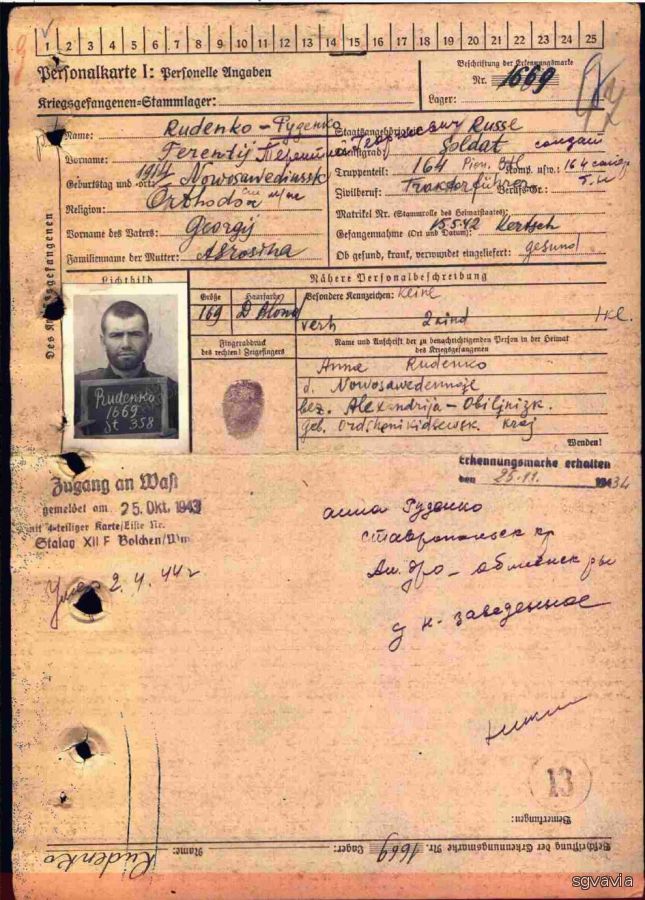 1 2 3 4 5 6 7 8 9 10 11 12 13 14 15 16 17 18 19 20 21 22 23 24 25
Personalkarte I: Personelle Angaben
Beschriftung der Erkennungsmarke
Nr. 1669
Kriegsgefangenen-Stammlager:
Lager:
Des Kriegsgefangenen
Name: Rudenko - Руденко
Staatsangehörigkeit: Russe
Vorname: Terentij Терентий Георгиевич
Dienstgrad: Soldat солдат
Geburtstag und -ort: 1914 Nowosawedinssk
Truppenteil: 164 Pion. Btl. Komp. usw.: 164
Religion: Orthodox
Zivilberuf: Traktorführer Berufs-Gr.:
Matrikel Nr. (Stammrolle des Heimatstaates):
Vorname des Vaters: Georgij
Gefangennahme (Ort und Datum): 15.5.42 Kertsch
Familienname der Mutter:
Ob gesund, krank, verwundet eingeliefert: gesund
Lichtbild
Nähere Personalbeschreibung
Größe
Haarfarbe
Besondere Kennzeichen: keine
169
D blond
verh 2 kind
1 kl.
Fingerabdruck
des rechten! Zeigefingers
Name und Anschrift der zu benachrichtigenden Person in der Heimat
des Kriegsgefangenen
Anna Rudenko
d. Nowosawedennoje
bez. Alexandrija - Obiljnizk.
geb. Ordshonikidsewsk kraj
Wenden!
Rudenko
1669
St 358
Erkennungsmarke erhalten
den 25.11. 1943
Zugang an Wast
gemeldet am 25. Okt. 1943
mit 4-teiliger Karte/Liste Nr.
Stalag XII F Bolchen/Wm
анна Руденко
Ставропольск кр
у н - заведенное
Умер 2.4.44 г
13
Bemerkungen:
Beschriftung der Erkennungsmarke Nr. 1669 Lager:
Name: Rudenko
sgvavia